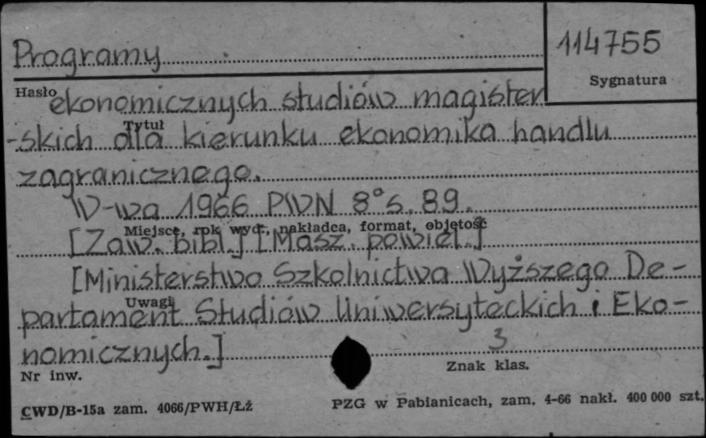 Programy
114755
Sygnatura
Hasło
ekonomicznych studiów magister
Tytuł
-skich dla kierunku ekonomika handlu
zagranicznego.
W-wa 1966 PWN 8° s. 89.
Miejsce, rok wyd., nakładca, format, objętość
[Zaw. bibl.] [Masz. powiel.]
[Ministerstwo Szkolnictwa Wyższego De-
Uwagi
partament Studiów Uniwersyteckich i Eko-
nomicznych.]
3
Nr inw.
Znak klas.
CWD/B-15a zam. 4066/PWH/Łż
PZG w Pabianicach, zam. 4-66 nakł. 400 000 szt.